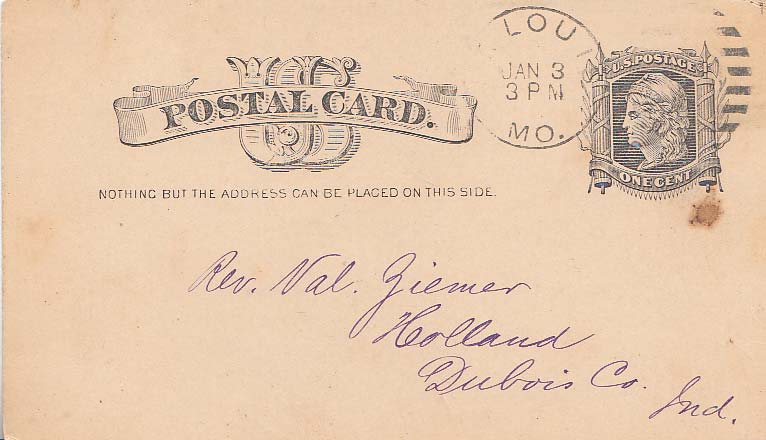 LOUI
JAN 3
3 PM
MO.
U.S. POSTAGE
ONE CENT
US
POSTAL CARD.
NOTHING BUT THE ADDRESS CAN BE PLACED ON THIS SIDE.
Rev. Val. Ziemer
Holland
Dubois Co. Ind.